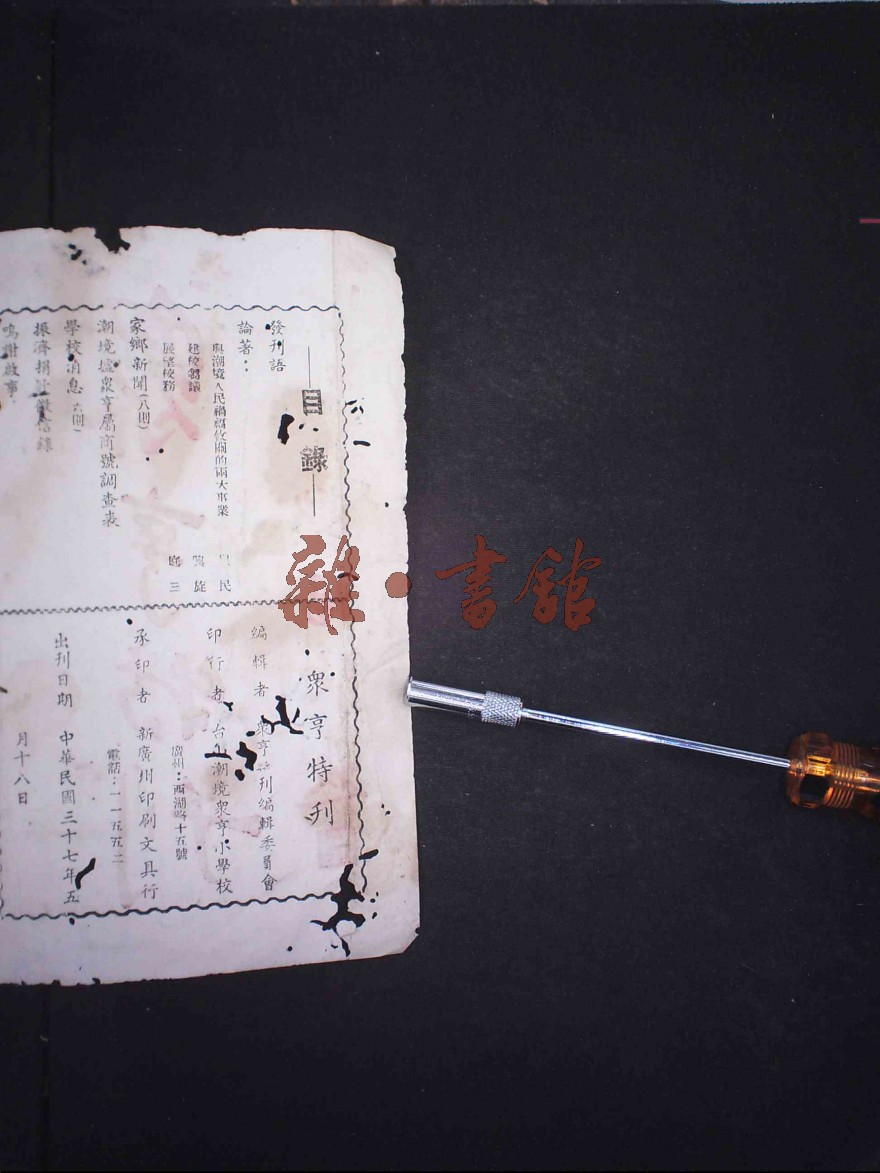 目錄
發刊語
論著：
與潮境人民禍福攸關的兩大事業 民
建校芻議 旋
展望校務 庭三
家鄉新聞（八則）
潮境墟眾亨屬商號調查表
學校消息 六則）
振濟捐 徵信錄
鳴謝啟事
眾亨特刊
編輯者 眾亨 刊編輯委員會
印行者 台 潮境眾亨小學校
廣州：西湖路十五號
承印者 新廣州印刷文具行
電話：一一五五二
出刊日期 中華民國三十七年五
月十八日
雜·書館